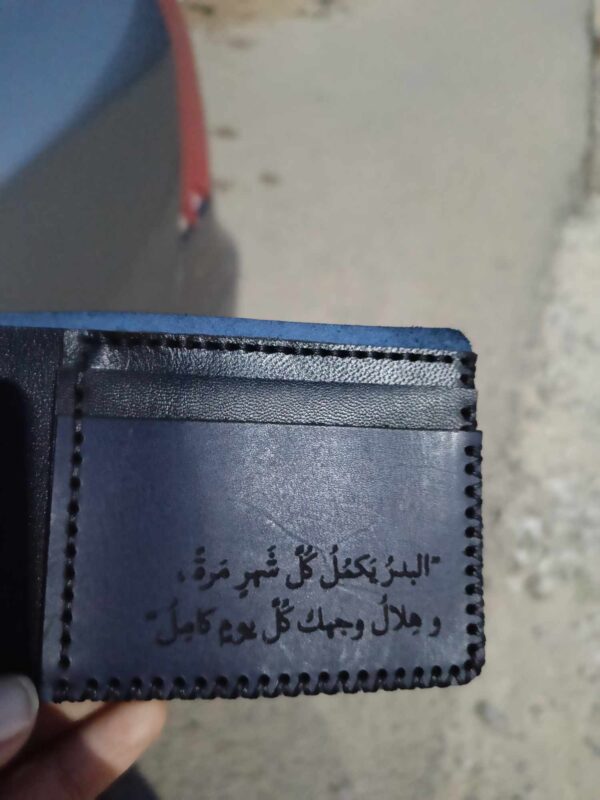 "البدرُ يَكمُلُ كُلَّ شَهرٍ مَرةً ،
و هِلالُ وجهك كُلَّ يومٍ كامِلُ"